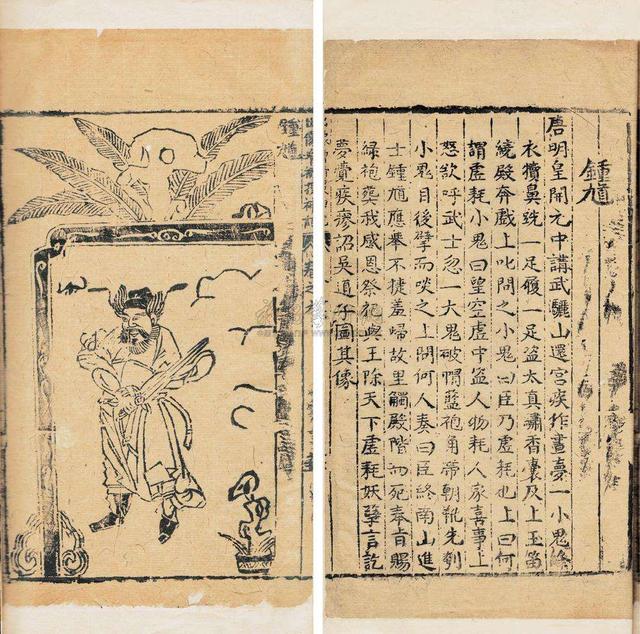 鍾馗
唐明皇開元中講武驪山還宮疾作晝夢一小鬼絳
衣犢鼻跣一足履一足盜太真繡香囊及上玉笛
繞殿奔戲上叱問之小鬼曰臣乃虛耗也上曰何
謂虛耗小鬼曰望空虛中盜人物耗人家喜事上
怒欲呼武士忽一大鬼破帽藍袍角帶朝靴先刳
小鬼目後擘而啖之上問何人奏曰臣終南山進
士鍾馗應舉不捷羞歸故里觸殿階而死奉旨賜
綠袍塟我感恩祭祀與王除天下虛耗妖孽言訖
夢覺疾瘳詔吳道子圖其像
鍾馗